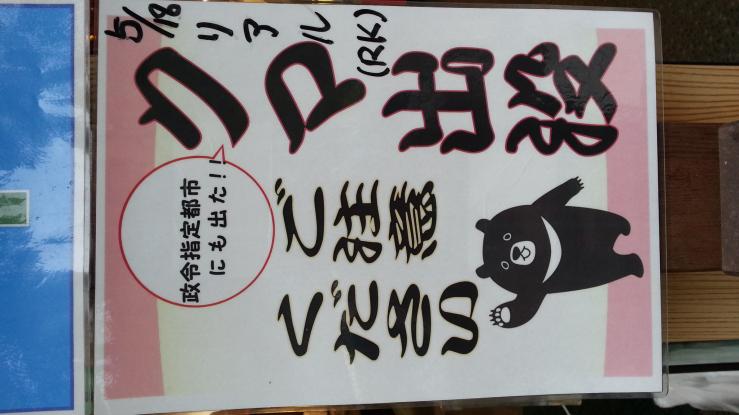 5/18 リアル(RK)
クマ出没
政令指定都市
にも出た!!
ご注意
ください